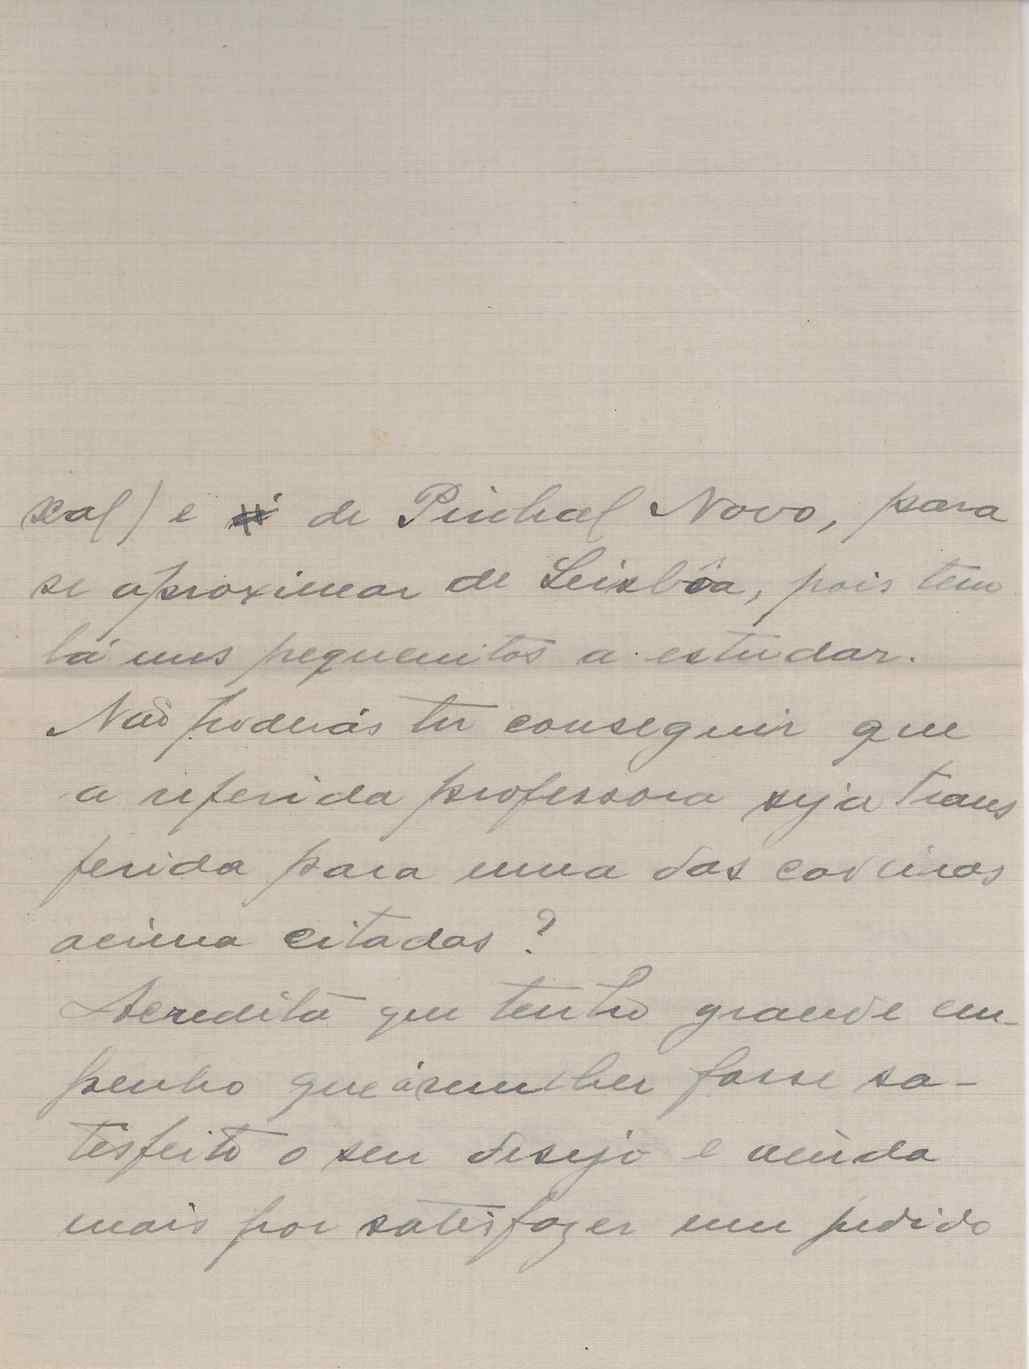 xal) e de Pinhal Novo, para
se aproximar de Leisbôa, pois tem
lá uns pequenitos a estudar.
Não poderás tu conseguir que
a referida professora seja trans
ferida para uma das cadeiras
acima citadas?
Acredita que tenho grande em-
penho que á mulher fosse sa-
tisfeito o seu desejo e ainda
mais por satisfazer um pedido